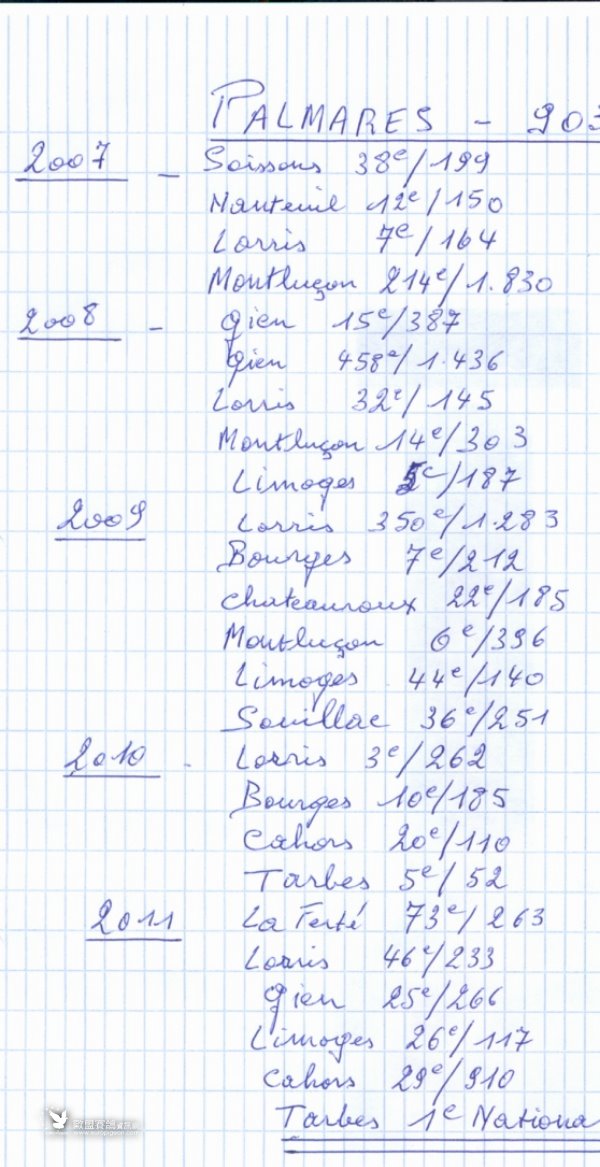 PALMARES - 903
2007 - Soissons 38e/199
Nanteuil 12e/150
Lorris 7e/164
Montluçon 214e/1.830
2008 - Gien 15e/387
Gien 458e/1.436
Lorris 32e/145
Montluçon 14e/303
Limoges 5e/187
2009 Lorris 350e/1.283
Bourges 7e/212
Chateauroux 22e/185
Montluçon 6e/396
Limoges 44e/140
Souillac 36e/251
2010 - Lorris 3e/262
Bourges 10e/185
Cahors 20e/110
Tarbes 5e/52
2011 La Ferté 73e/263
Lorris 46e/233
Gien 25e/266
Limoges 26e/117
Cahors 29e/910
Tarbes 1e Nationa
歐盟賽鴿資訊網